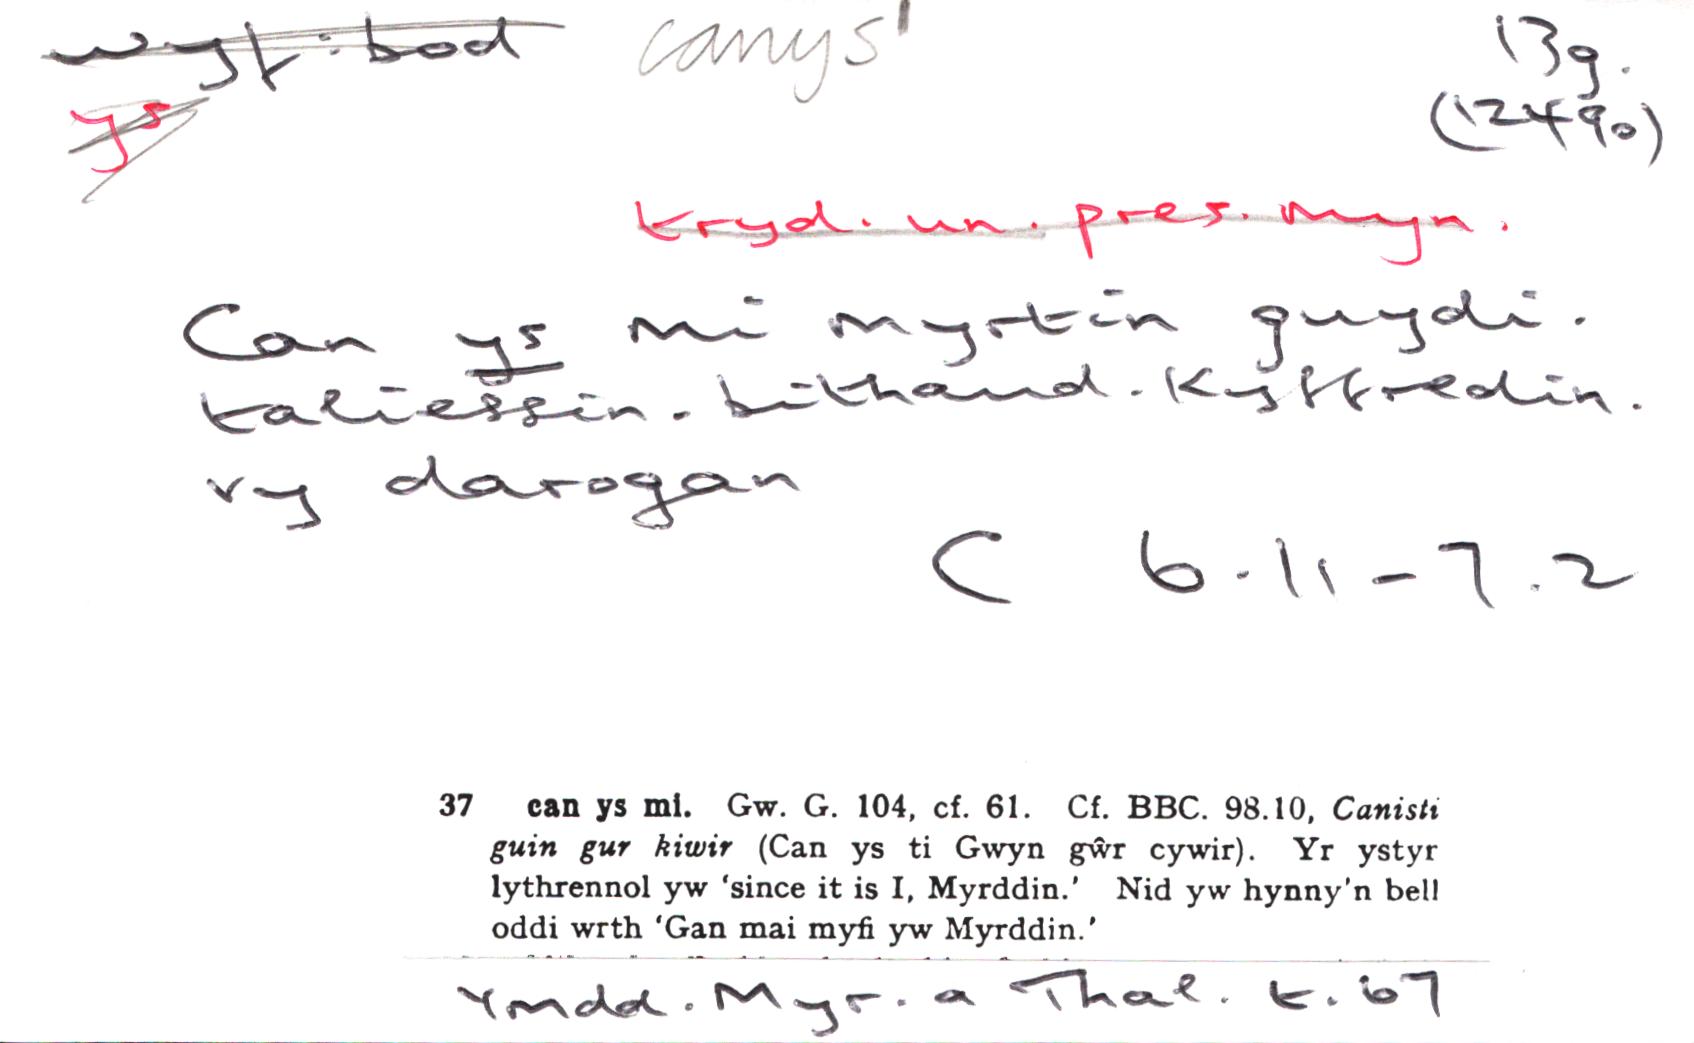 wyf : bod canys¹ 13g.
ys (1249o)
tryd. un. pres. Myn.
Can ys mi myrtin guydi.
taliessin. bithaud. Kyffredin.
vy darogan
C 6.11-7.2
37 can ys mi. Gw. G. 104, cf. 61. Cf. BBC. 98.10, Canisti
guin gur kiwir (Can ys ti Gwyn gŵr cywir). Yr ystyr
lythrennol yw ‘since it is I, Myrddin.’ Nid yw hynny'n bell
oddi wrth ‘Gan mai myfi yw Myrddin.’
Ymdd. Myr. a Thal. t. 67